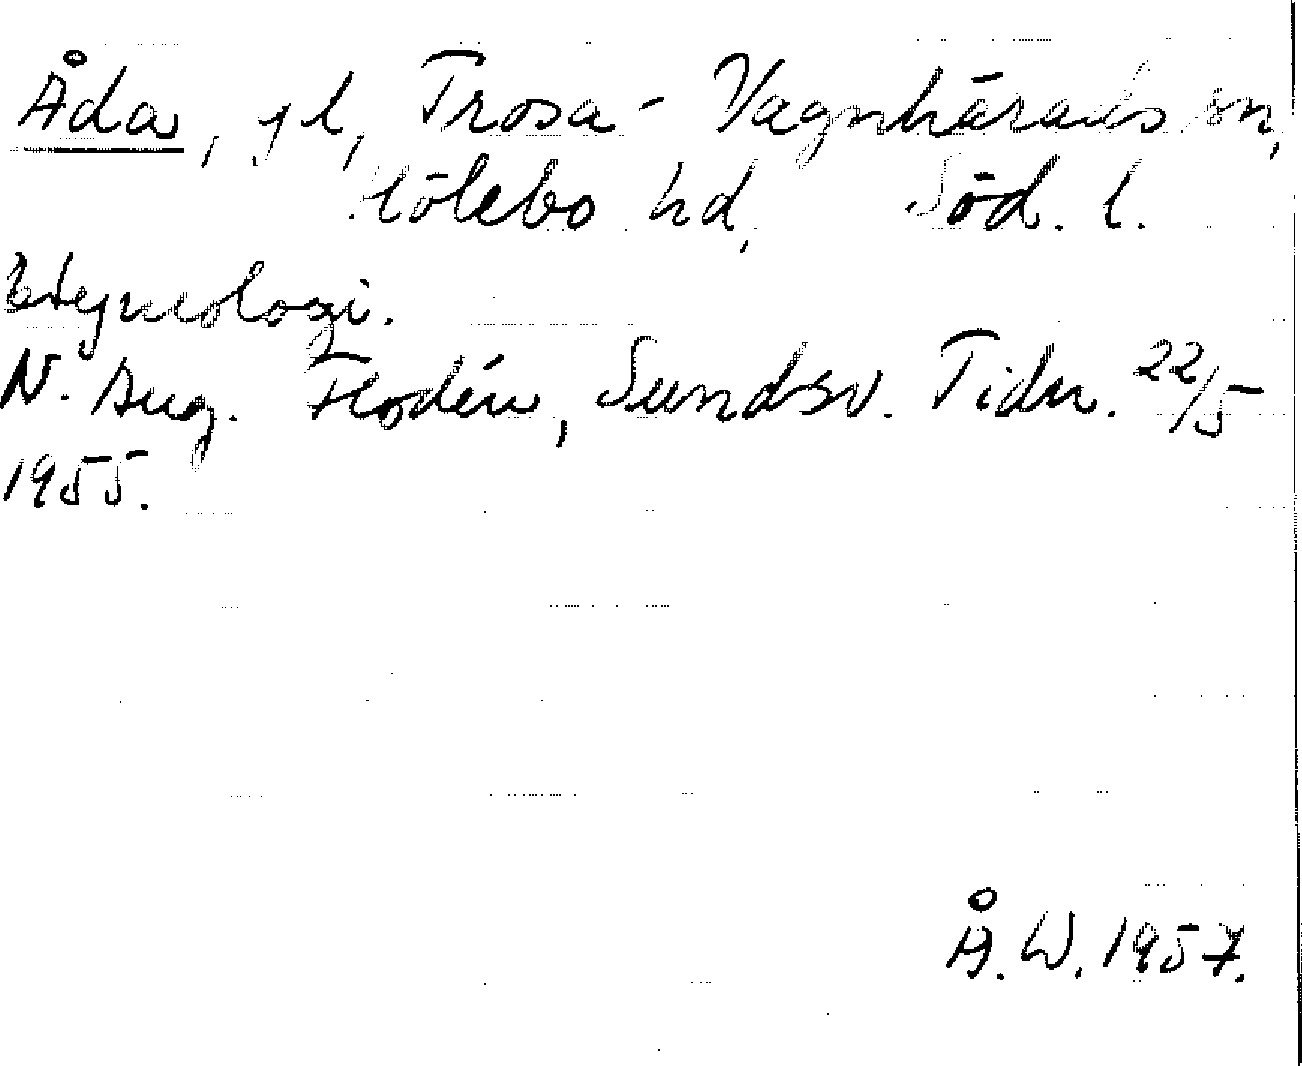 Åda, gd, Trosa-Vagnhärads sn,
Hölebo hd, Söd. l.
Etymologi.
N. Aug. Flodén, Sundsv. Tidn. 22/5
1955.
Å.W. 1957.